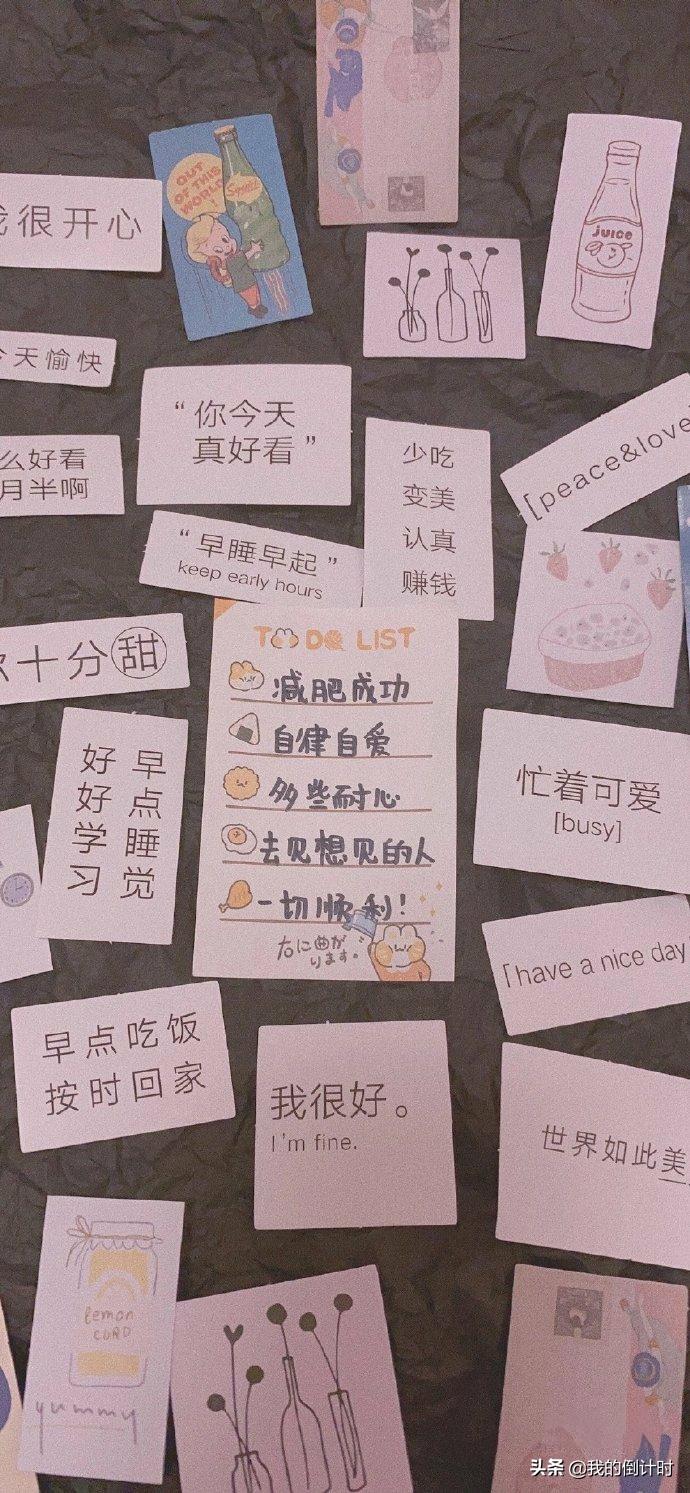 OUT
OF THIS
WORLD!
JUICE
很开心
天愉快
“你今天
真好看”
少吃
变美
认真
赚钱
[peace&love
么好看
月半啊
“早睡早起”
keep early hours
十分甜
TO DO LIST
减肥成功
自律自爱
多些耐心
去见想见的人
一切顺利!
右に曲が
ります。
早点睡觉
好好学习
忙着可爱
[busy]
「have a nice day
早点吃饭
按时回家
我很好。
I'm fine.
世界如此美
lemon
CURD
yummy
头条 @我的倒计时